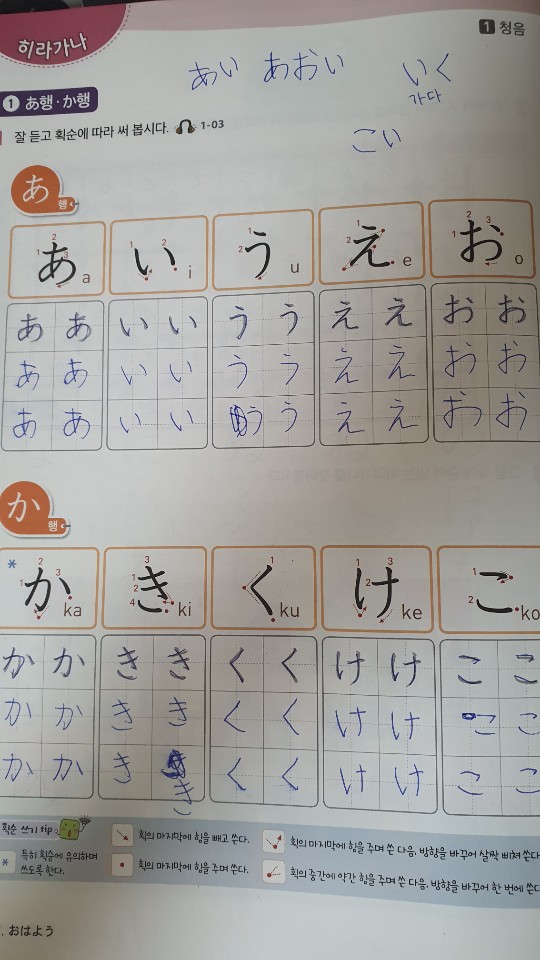 히라가나
1 청음
あい あおい いく
가다
こい
1 あ행·か행
잘 듣고 획순에 따라 써 봅시다. 1-03
あ행
あ a い i う u え e お o
ああ いい うう ええ おお
ああ いい うう ええ おお
ああ いい うう ええ おお
か행
* か ka き ki く ku け ke こ ko
かか きき くく けけ ここ
かか きき くく けけ ここ
かか きき くく けけ ここ
획순 쓰기 tip
* 특히 획순에 유의하며 쓰도록 한다.
획의 마지막에 힘을 빼고 쓴다.
획의 마지막에 힘을 주며 쓴 다음, 방향을 바꾸어 살짝 삐쳐 쓴다
획의 마지막에 힘을 주며 쓴다.
획의 중간에 약간 힘을 주며 쓴 다음, 방향을 바꾸어 한 번에 쓴다
. おはよう